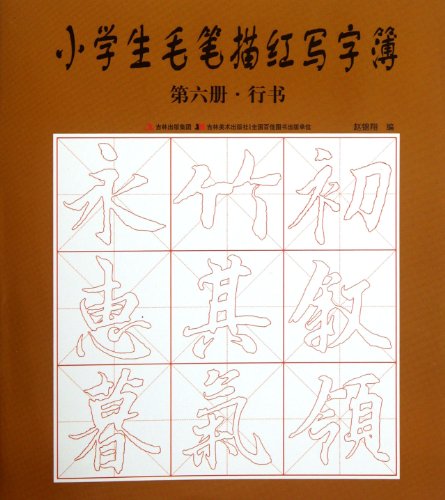 小学生毛笔描红写字簿
第六册·行书
编
吉林出版集团 吉林美术出版社|全国百佳图书出版单位
永竹初
惠其叙
暮氣領